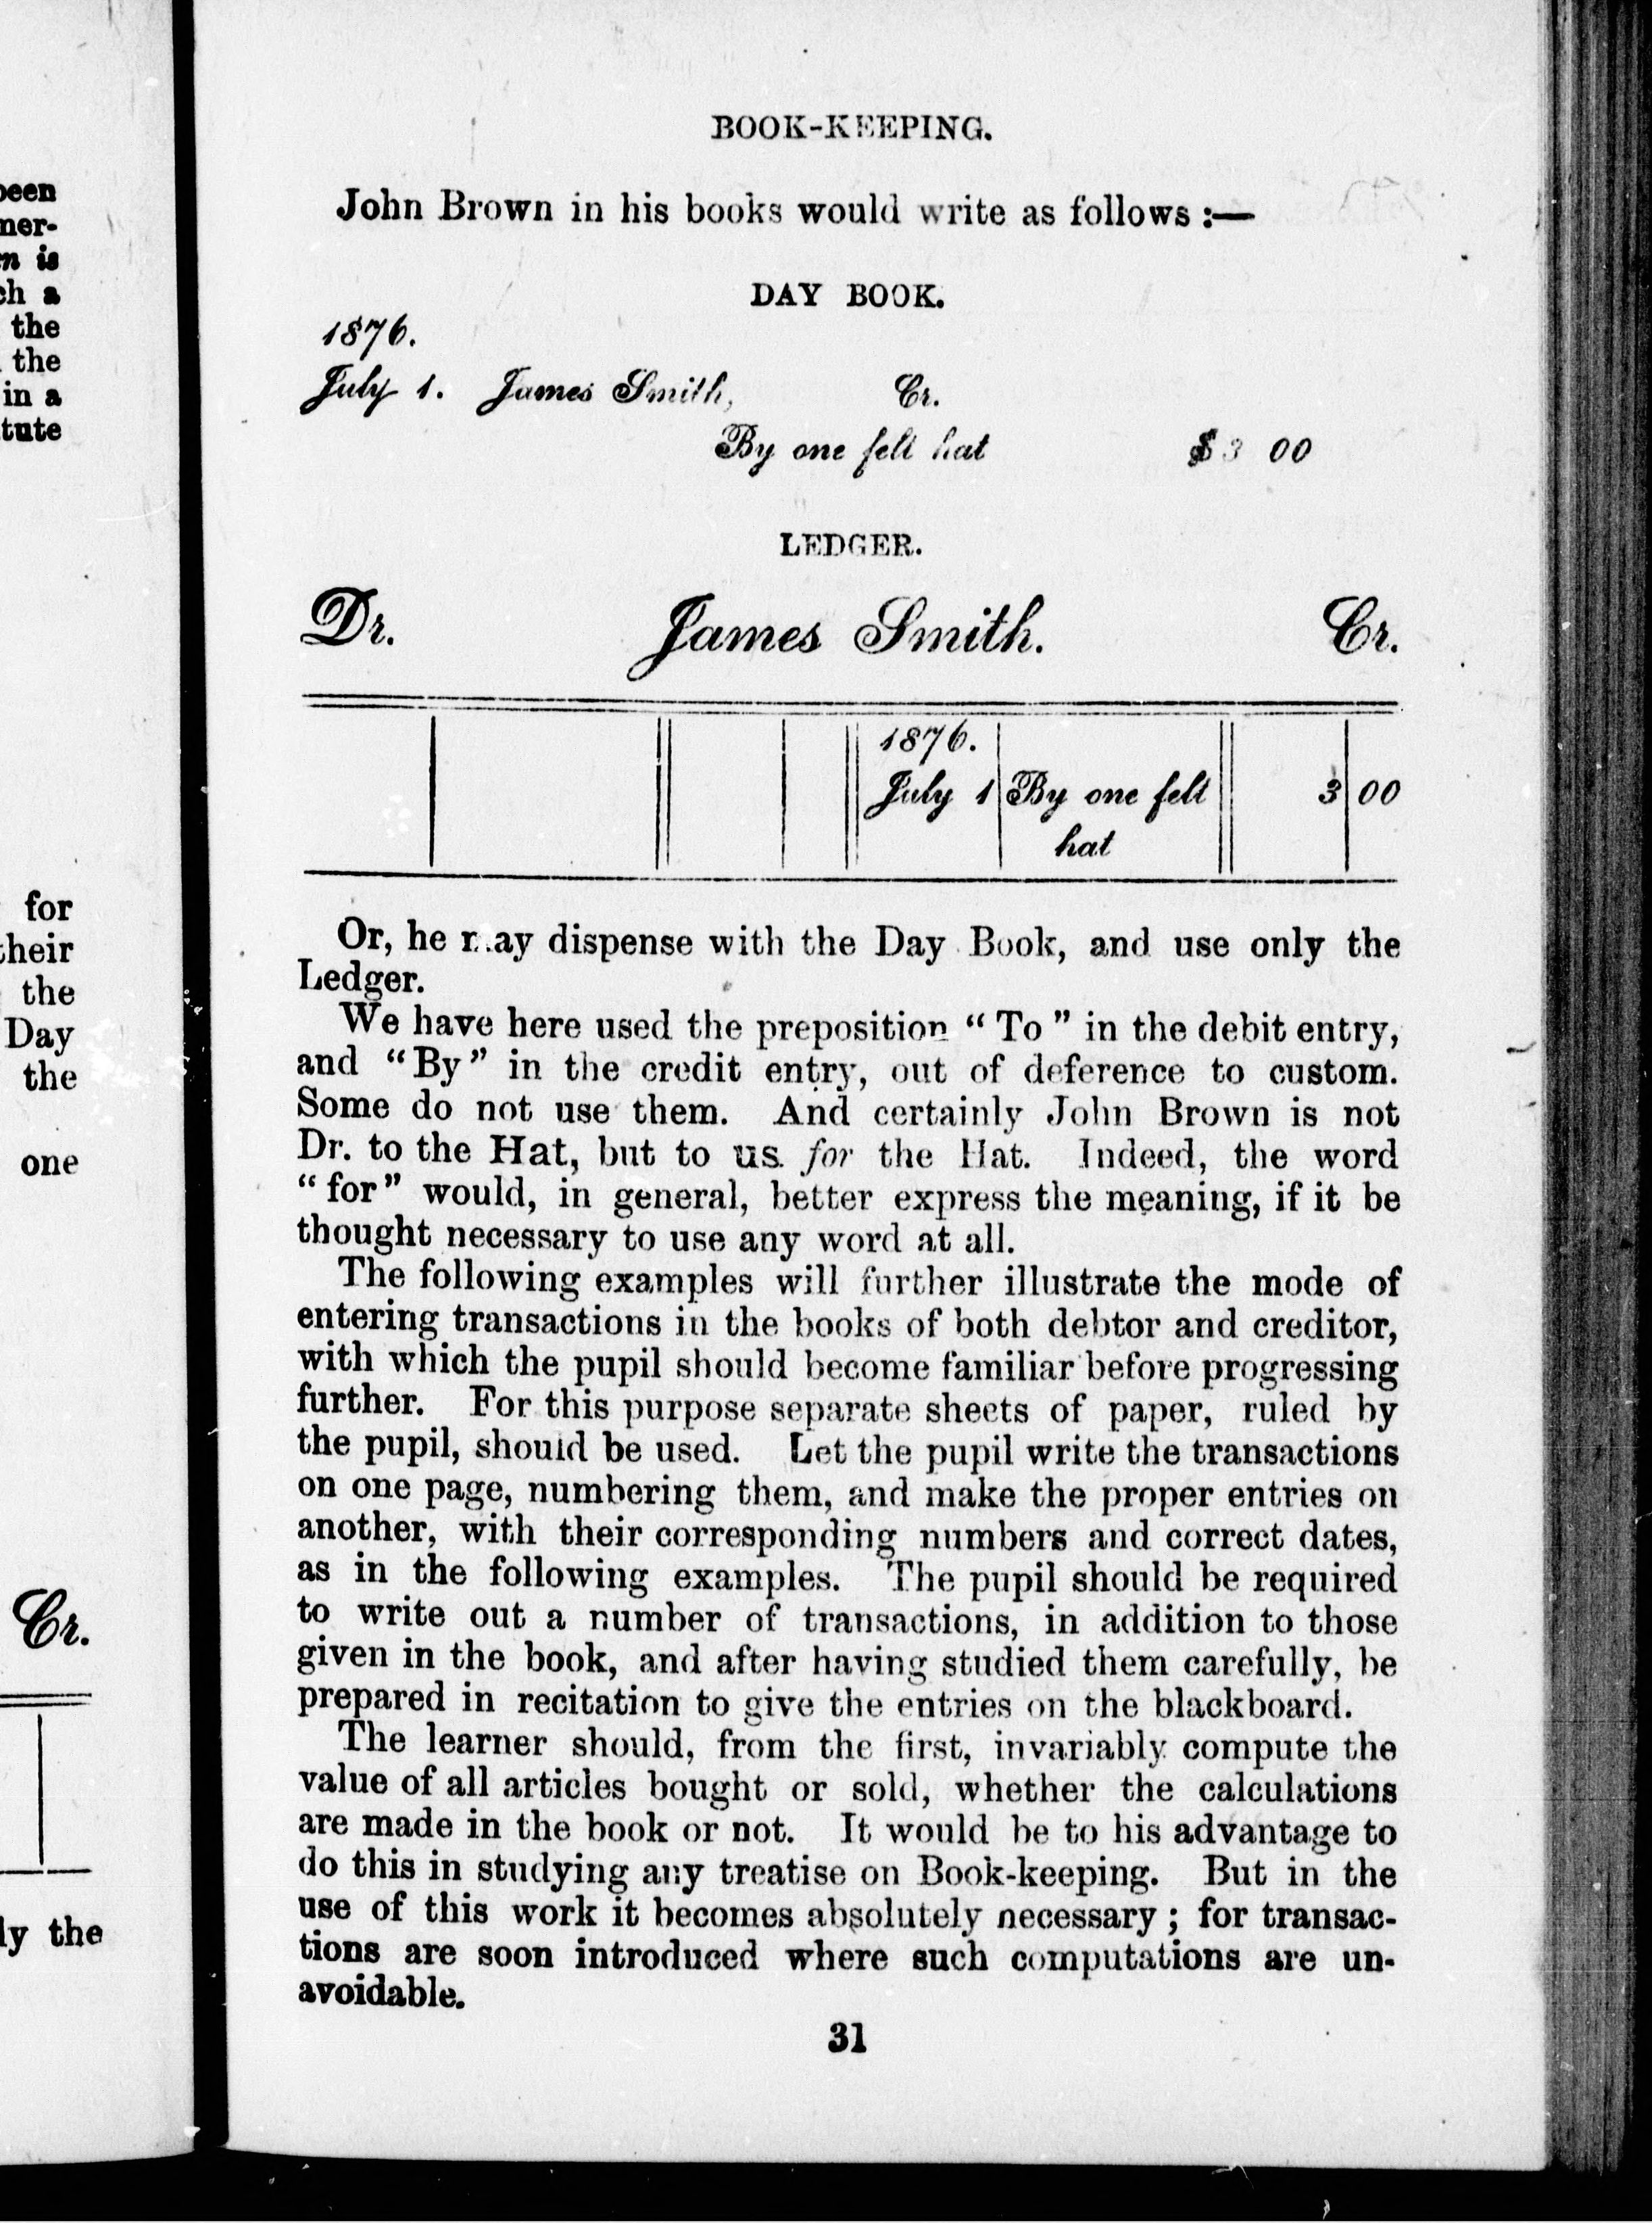 been
mer-
rn is
ch a
the
the
in a
tute
for
their
the
Day
the
one
Cr.
ly the
BOOK-KEEPING.
John Brown in his books would write as follows :—
DAY BOOK.
1876.
July 1. James Smith, Cr.
By one felt hat $3 00
LEDGER.
Dr. James Smith. Cr.
1876.
July 1 By one felt 3 00
hat
Or, he may dispense with the Day Book, and use only the
Ledger.
We have here used the preposition "To" in the debit entry,
and "By" in the credit entry, out of deference to custom.
Some do not use them. And certainly John Brown is not
Dr. to the Hat, but to us for the Hat. Indeed, the word
"for" would, in general, better express the meaning, if it be
thought necessary to use any word at all.
The following examples will further illustrate the mode of
entering transactions in the books of both debtor and creditor,
with which the pupil should become familiar before progressing
further. For this purpose separate sheets of paper, ruled by
the pupil, should be used. Let the pupil write the transactions
on one page, numbering them, and make the proper entries on
another, with their corresponding numbers and correct dates,
as in the following examples. The pupil should be required
to write out a number of transactions, in addition to those
given in the book, and after having studied them carefully, be
prepared in recitation to give the entries on the blackboard.
The learner should, from the first, invariably compute the
value of all articles bought or sold, whether the calculations
are made in the book or not. It would be to his advantage to
do this in studying any treatise on Book-keeping. But in the
use of this work it becomes absolutely necessary ; for transac-
tions are soon introduced where such computations are un-
avoidable.
31